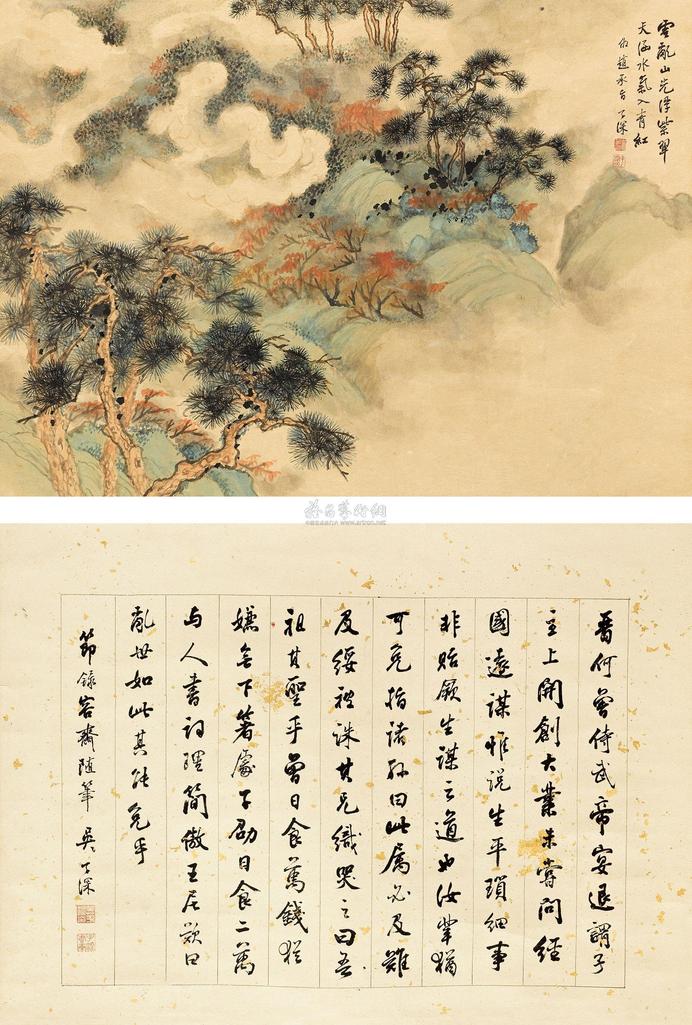 雲亂山光浮紫翠
天涵水氣入青紅
仿趙承旨 子深
www.artron.net
晉何曾侍武帝宴退謂子
主上開創大業未嘗聞經
國遠謀惟説生平瑣細事
非貽厥生謀之道也汝輩猶
可免指諸孫曰此属必及難
及綏被誅其兄嶷哭之曰吾
祖其聖乎曾日食萬錢猶
嫌無下箸處子劭日食二萬
与人書詞理簡傲王尼歎曰
亂世如此其能免乎
節錄容齋隨筆 吳子深